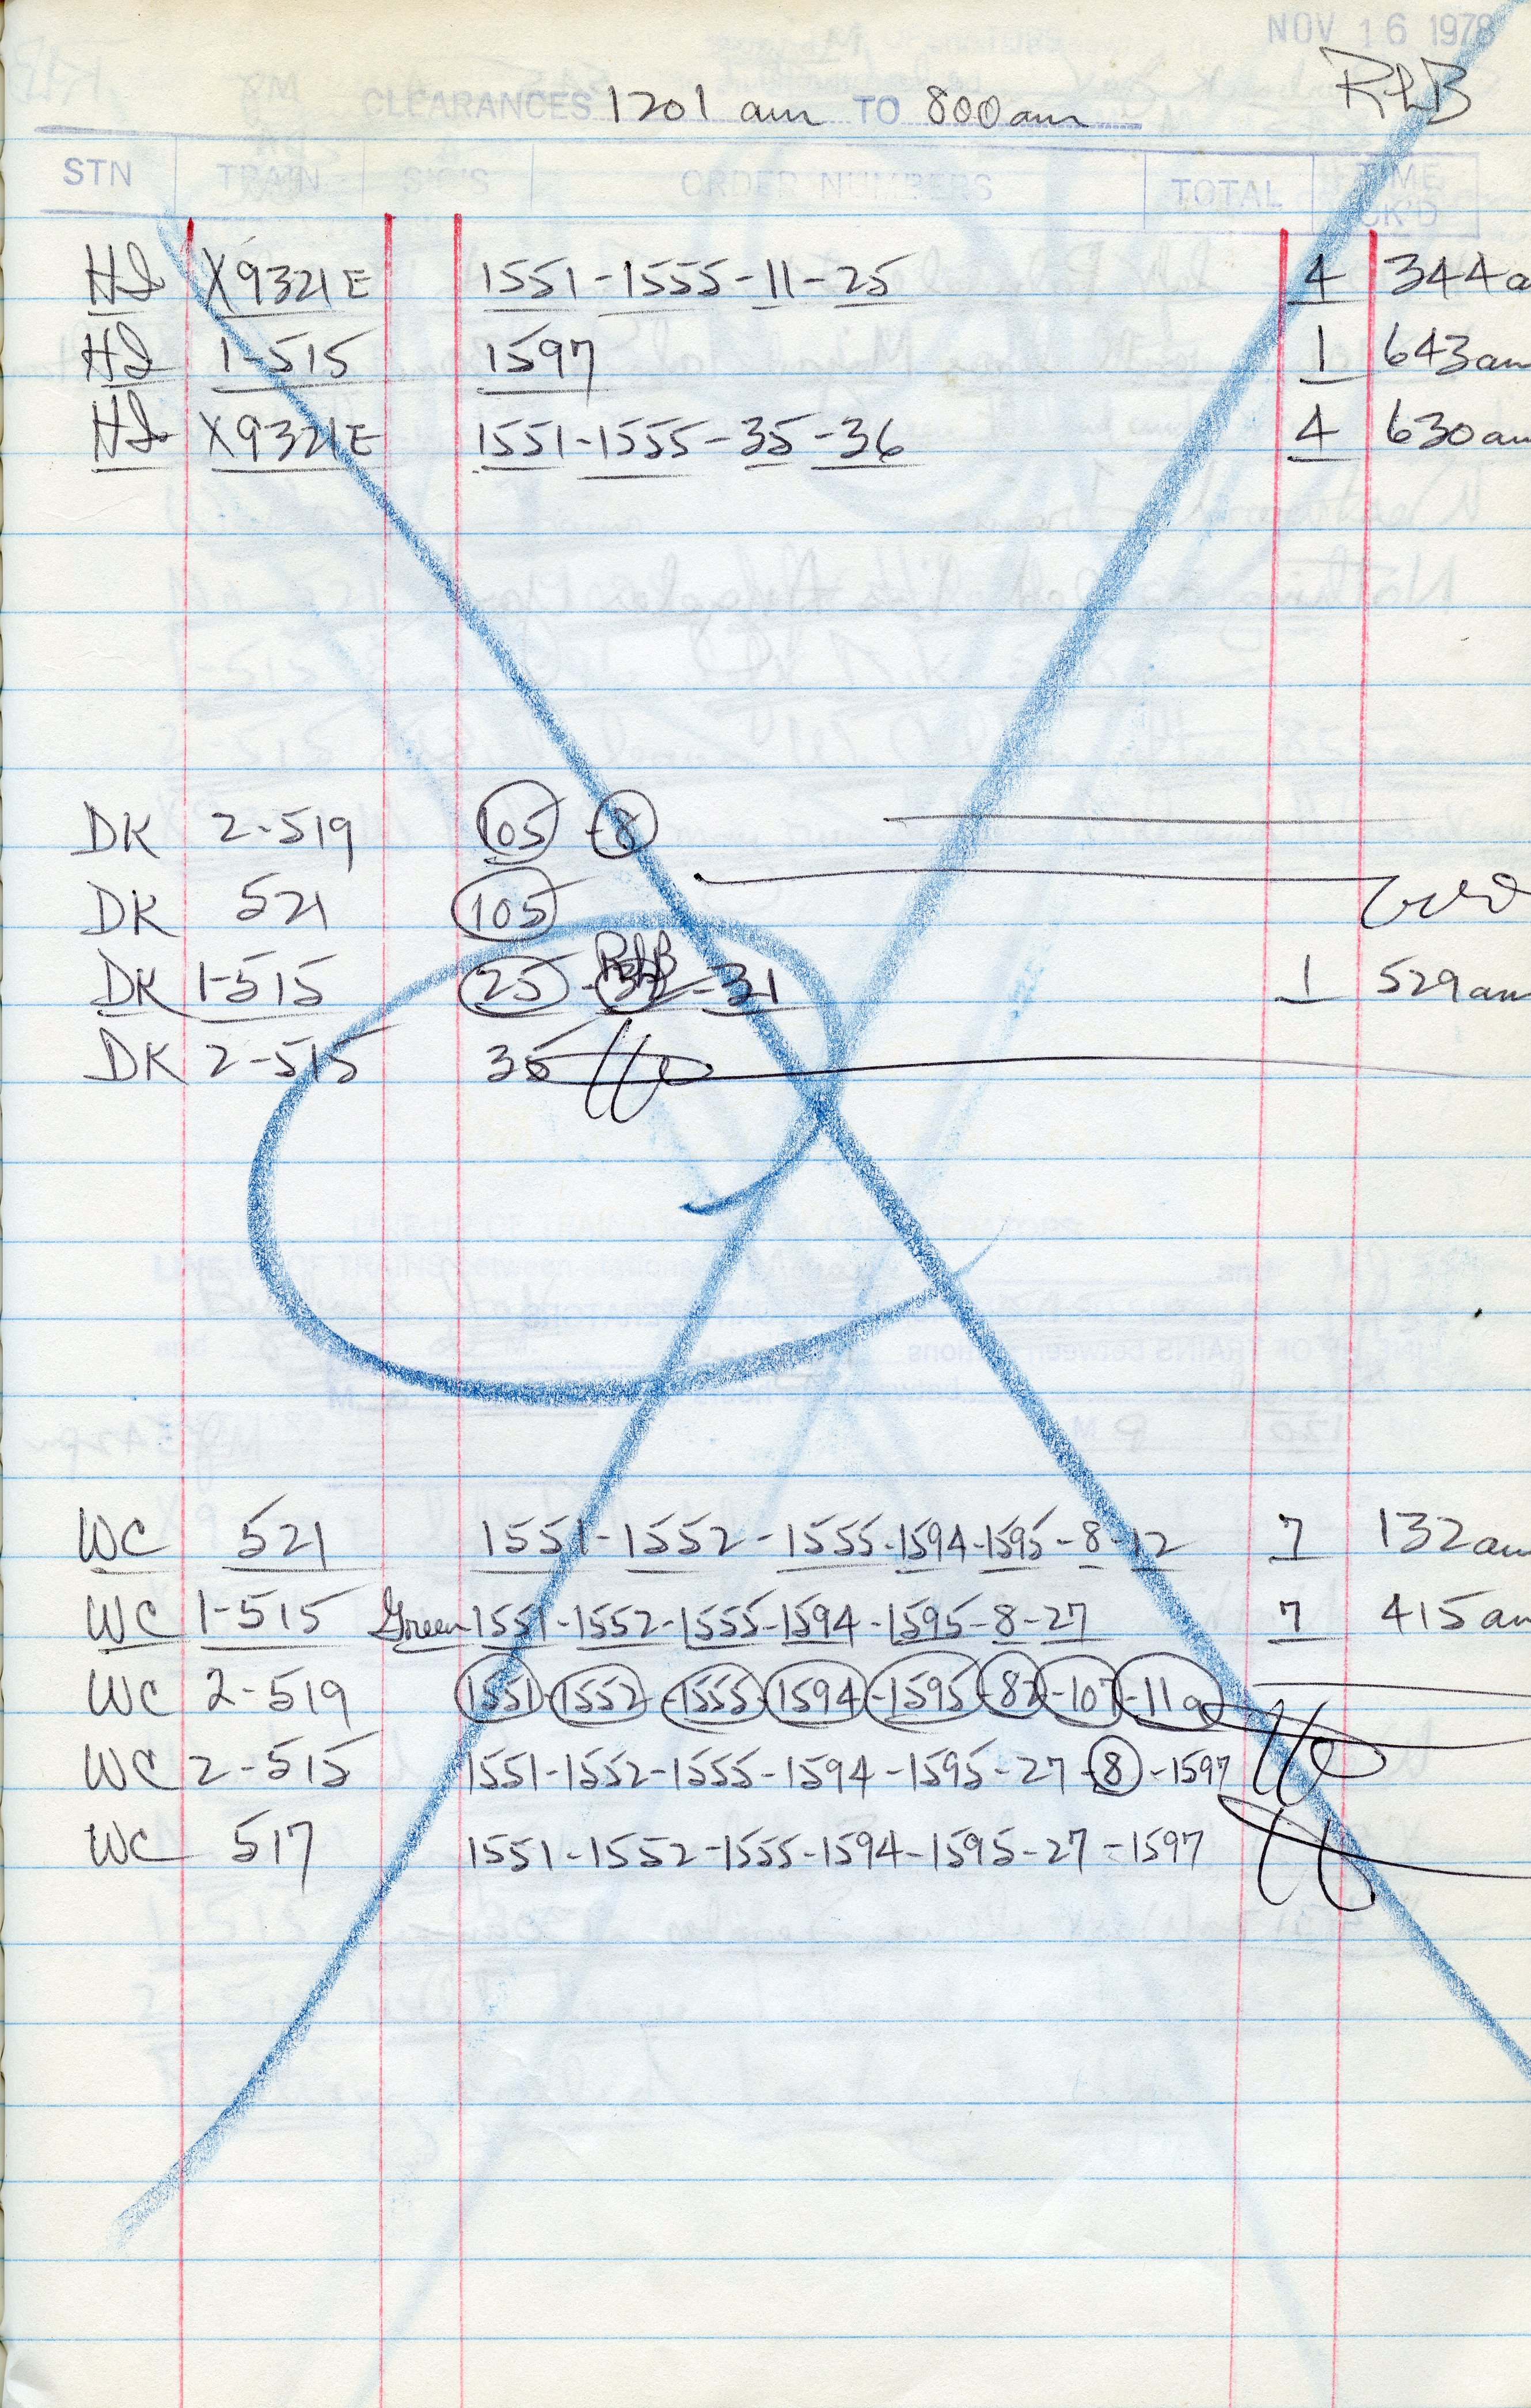 NOV 16 1978
RLB
CLEARANCES 1201 am TO 800am
STN TRAIN SIG'S ORDER NUMBERS TOTAL TIME OK'D
HI X9321E 1551-1555-11-25 4 344a
HI 1-515 1597 1 643am
HI X9321E 1551-1555-35-36 4 630am
DK 2-519 105 -8
DK 521 105
DK 1-515 25 - RLB -31 1 529am
DK 2-515 35
WC 521 1551-1552-1555-1594-1595-8-12 7 132am
WC 1-515 Green 1551-1552-1555-1594-1595-8-27 7 415am
WC 2-519 1551-1552-1555-1594-1595-82-107-119
WC 2-515 1551-1552-1555-1594-1595-27-8-1597
WC 517 1551-1552-1555-1594-1595-27-1597